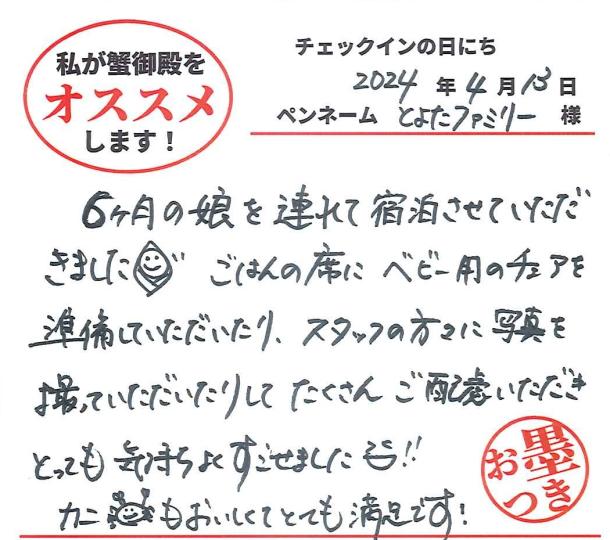 私が蟹御殿を
オススメ
します！
チェックインの日にち
2024 年 4 月 13 日
ペンネーム とよたファミリー 様
6ヶ月の娘を連れて宿泊させていただ
きました ごはんの席に ベビー用のチェアを
準備していただいたり、スタッフの方々に写真を
撮っていただいたりして たくさん ご配慮いただき
とっても 気持ちよくすごせました!!
カニ もおいしくてとても満足です!
お墨つき